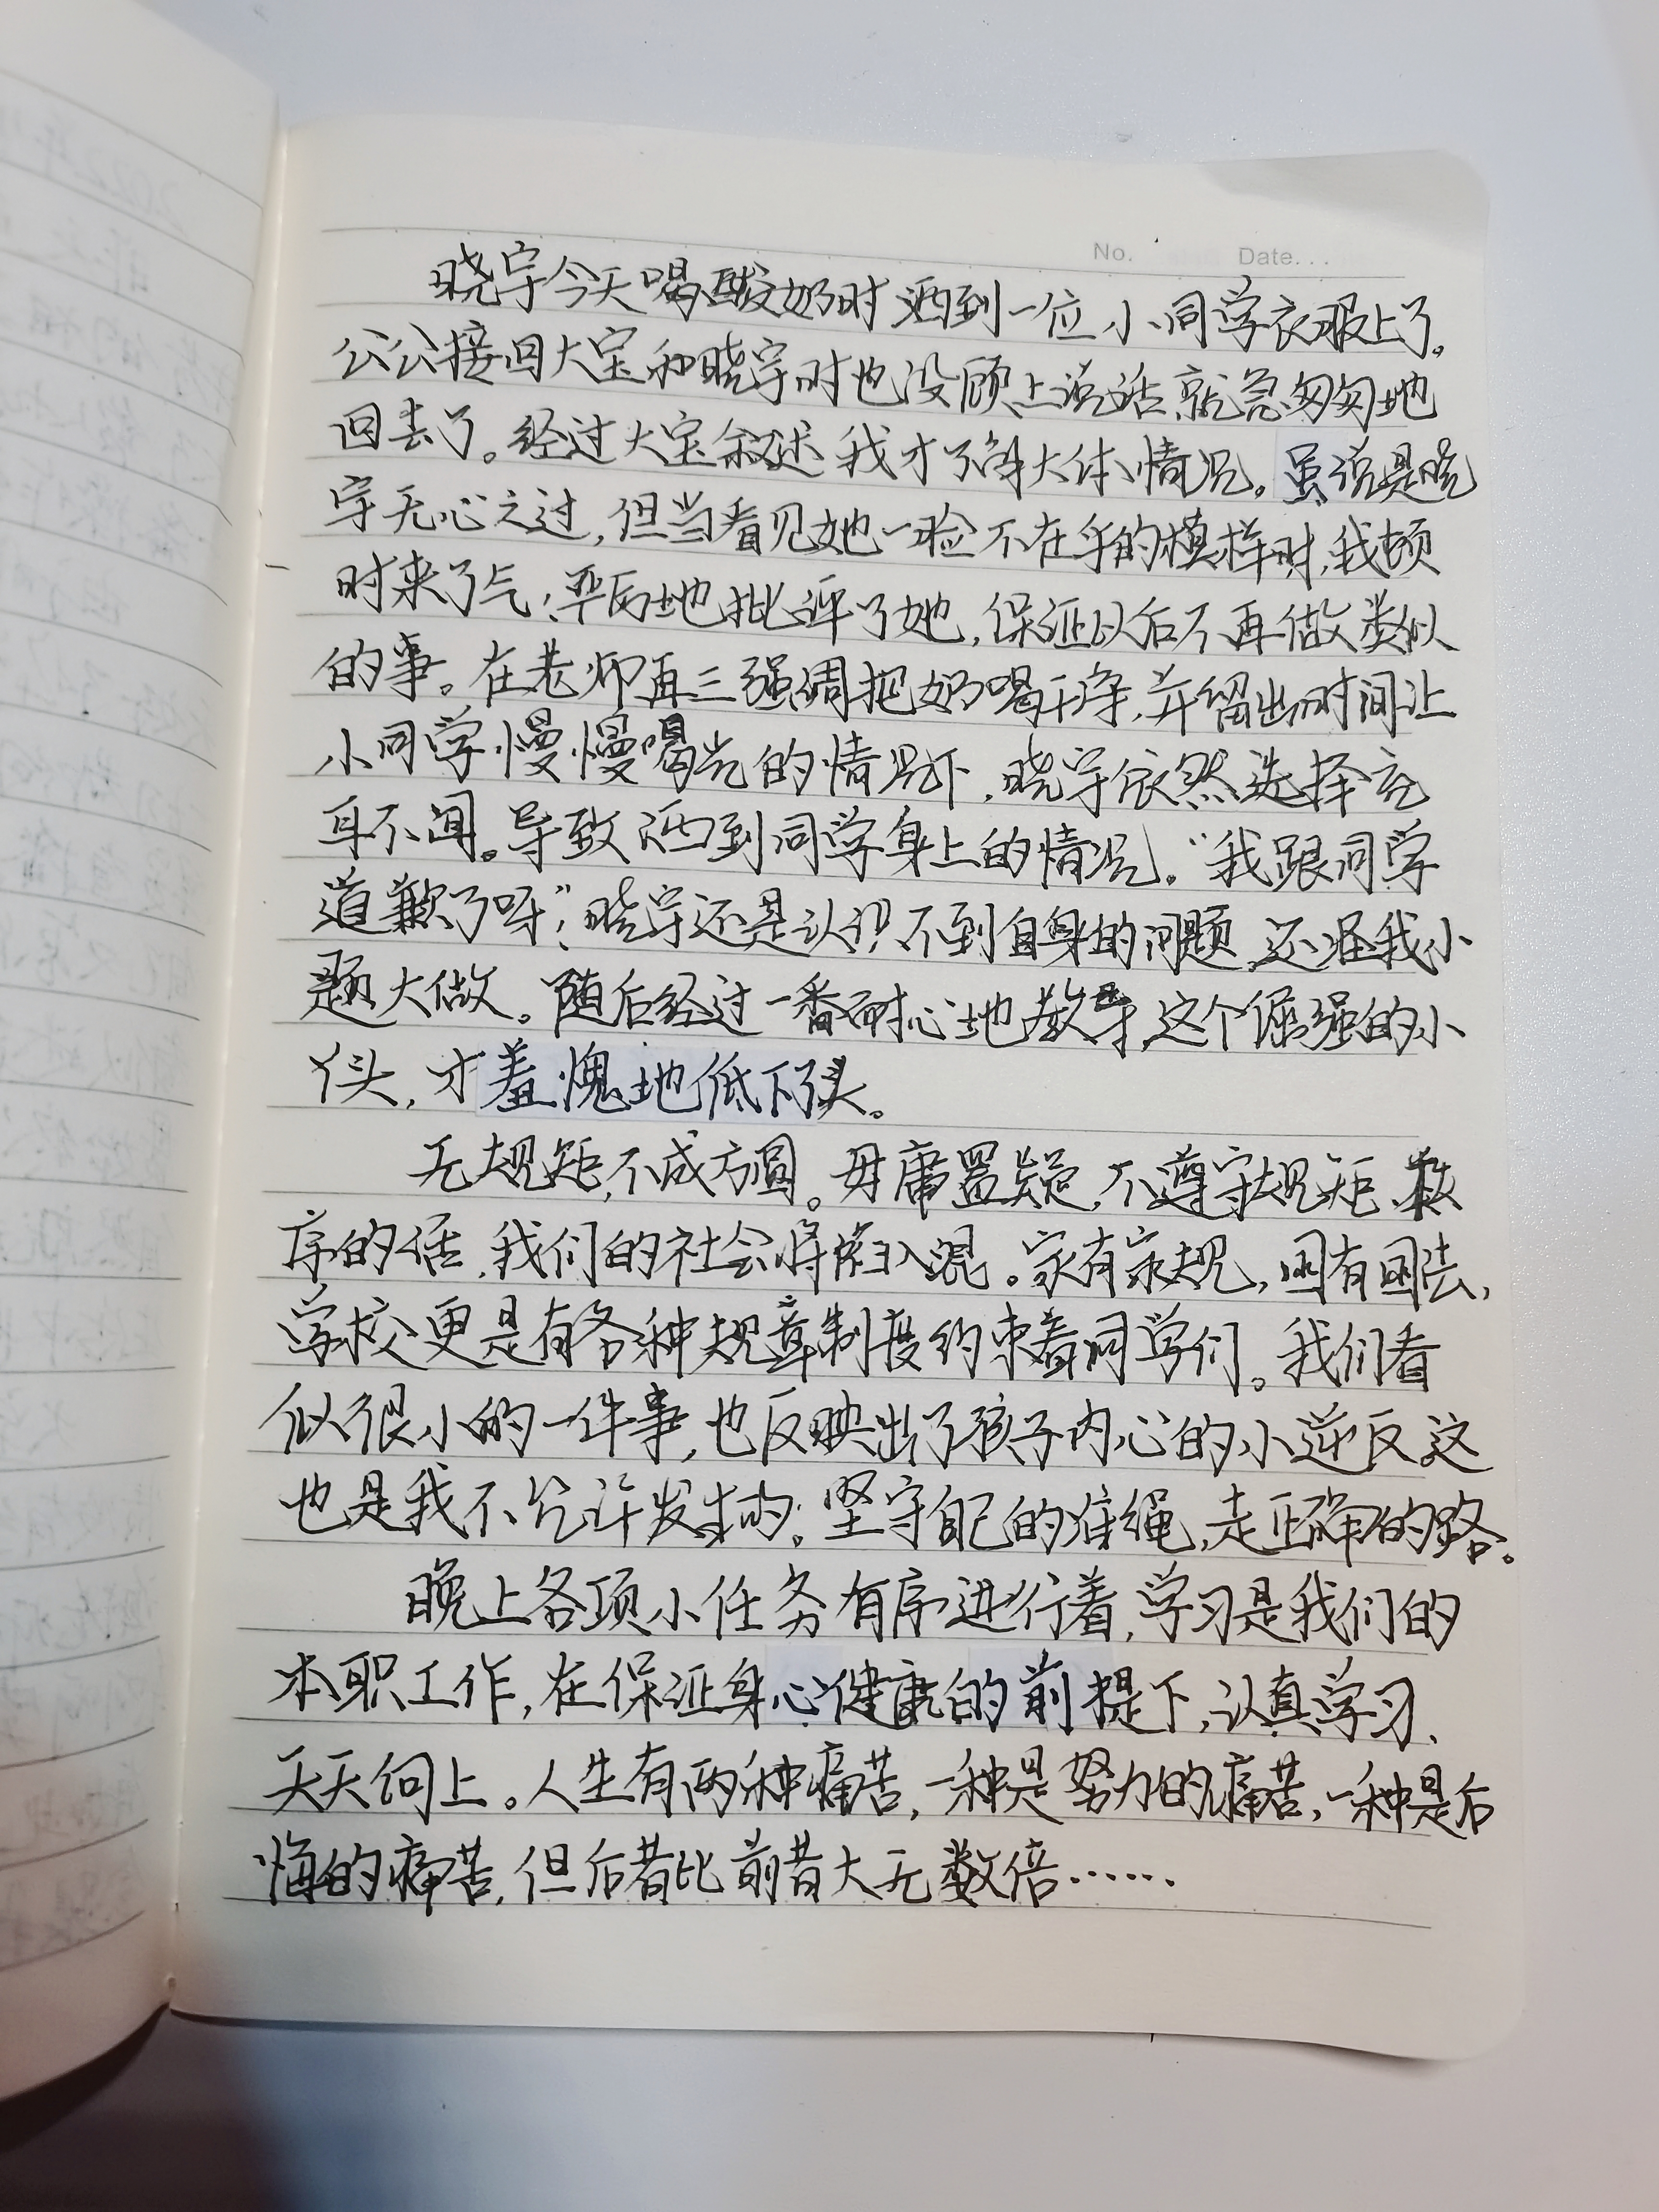 No. Date...
晓宇今天喝酸奶时洒到一位小同学衣服上了。
公公接回大宝和晓宇时也没顾上说话就急匆匆地
回去了。经过大宝叙述我才了解大体情况。虽说是晓
宇无心之过,但当看见她一脸不在乎的模样时,我顿
时来了气,严厉地批评了她,保证以后不再做类似
的事。在老师再三强调把奶喝干净,并留出时间让
小同学慢慢喝光的情况下,晓宇依然选择充
耳不闻。导致洒到同学身上的情况。“我跟同学
道歉了呀”,晓宇还是认识不到自身的问题,还怪我小
题大做。随后经过一番耐心地教导,这个倔强的小
丫头,才羞愧地低下了头。
无规矩,不成方圆。毋庸置疑,不遵守规矩、秩
序的话,我们的社会将陷入混。家有家规,国有国法,
学校更是有各种规章制度约束着同学们。我们看
似很小的一件事,也反映出了孩子内心的小逆反,这
也是我不允许发生的;坚守自己的准绳,走正确的路。
晚上各项小任务有序进行着,学习是我们的
本职工作,在保证身心健康的前提下,认真学习、
天天向上。人生有两种痛苦,一种是努力的痛苦,一种是后
悔的痛苦,但后者比前者大无数倍……